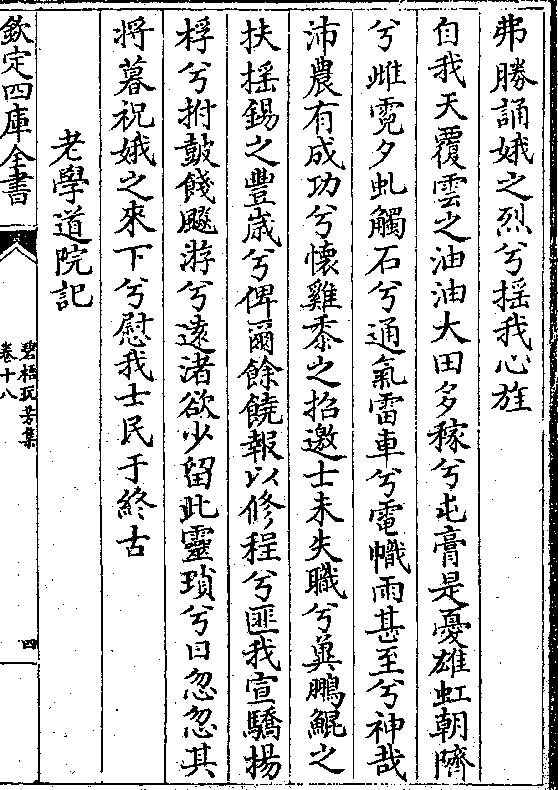 弗勝誦娥之烈兮揺我心旌
自我天覆雲之油油大田多稼兮屯膏是憂雄虹朝隮
兮雌霓夕虬觸石兮通氣雷車兮電幟雨甚至兮神哉
沛農有成功兮懷雞黍之招邀士未失職兮䔳鵬鯤之
扶揺錫之豐歳兮俾爾餘饒報以修程兮匪我宣驕揚
桴兮拊鼓餞飈游兮遠渚欲少留此靈瑣兮日忽忽其
將暮祝娥之來下兮慰我士民于終古
老學道院記
欽定四庫全書
碧梧玩芳集
卷十八
四